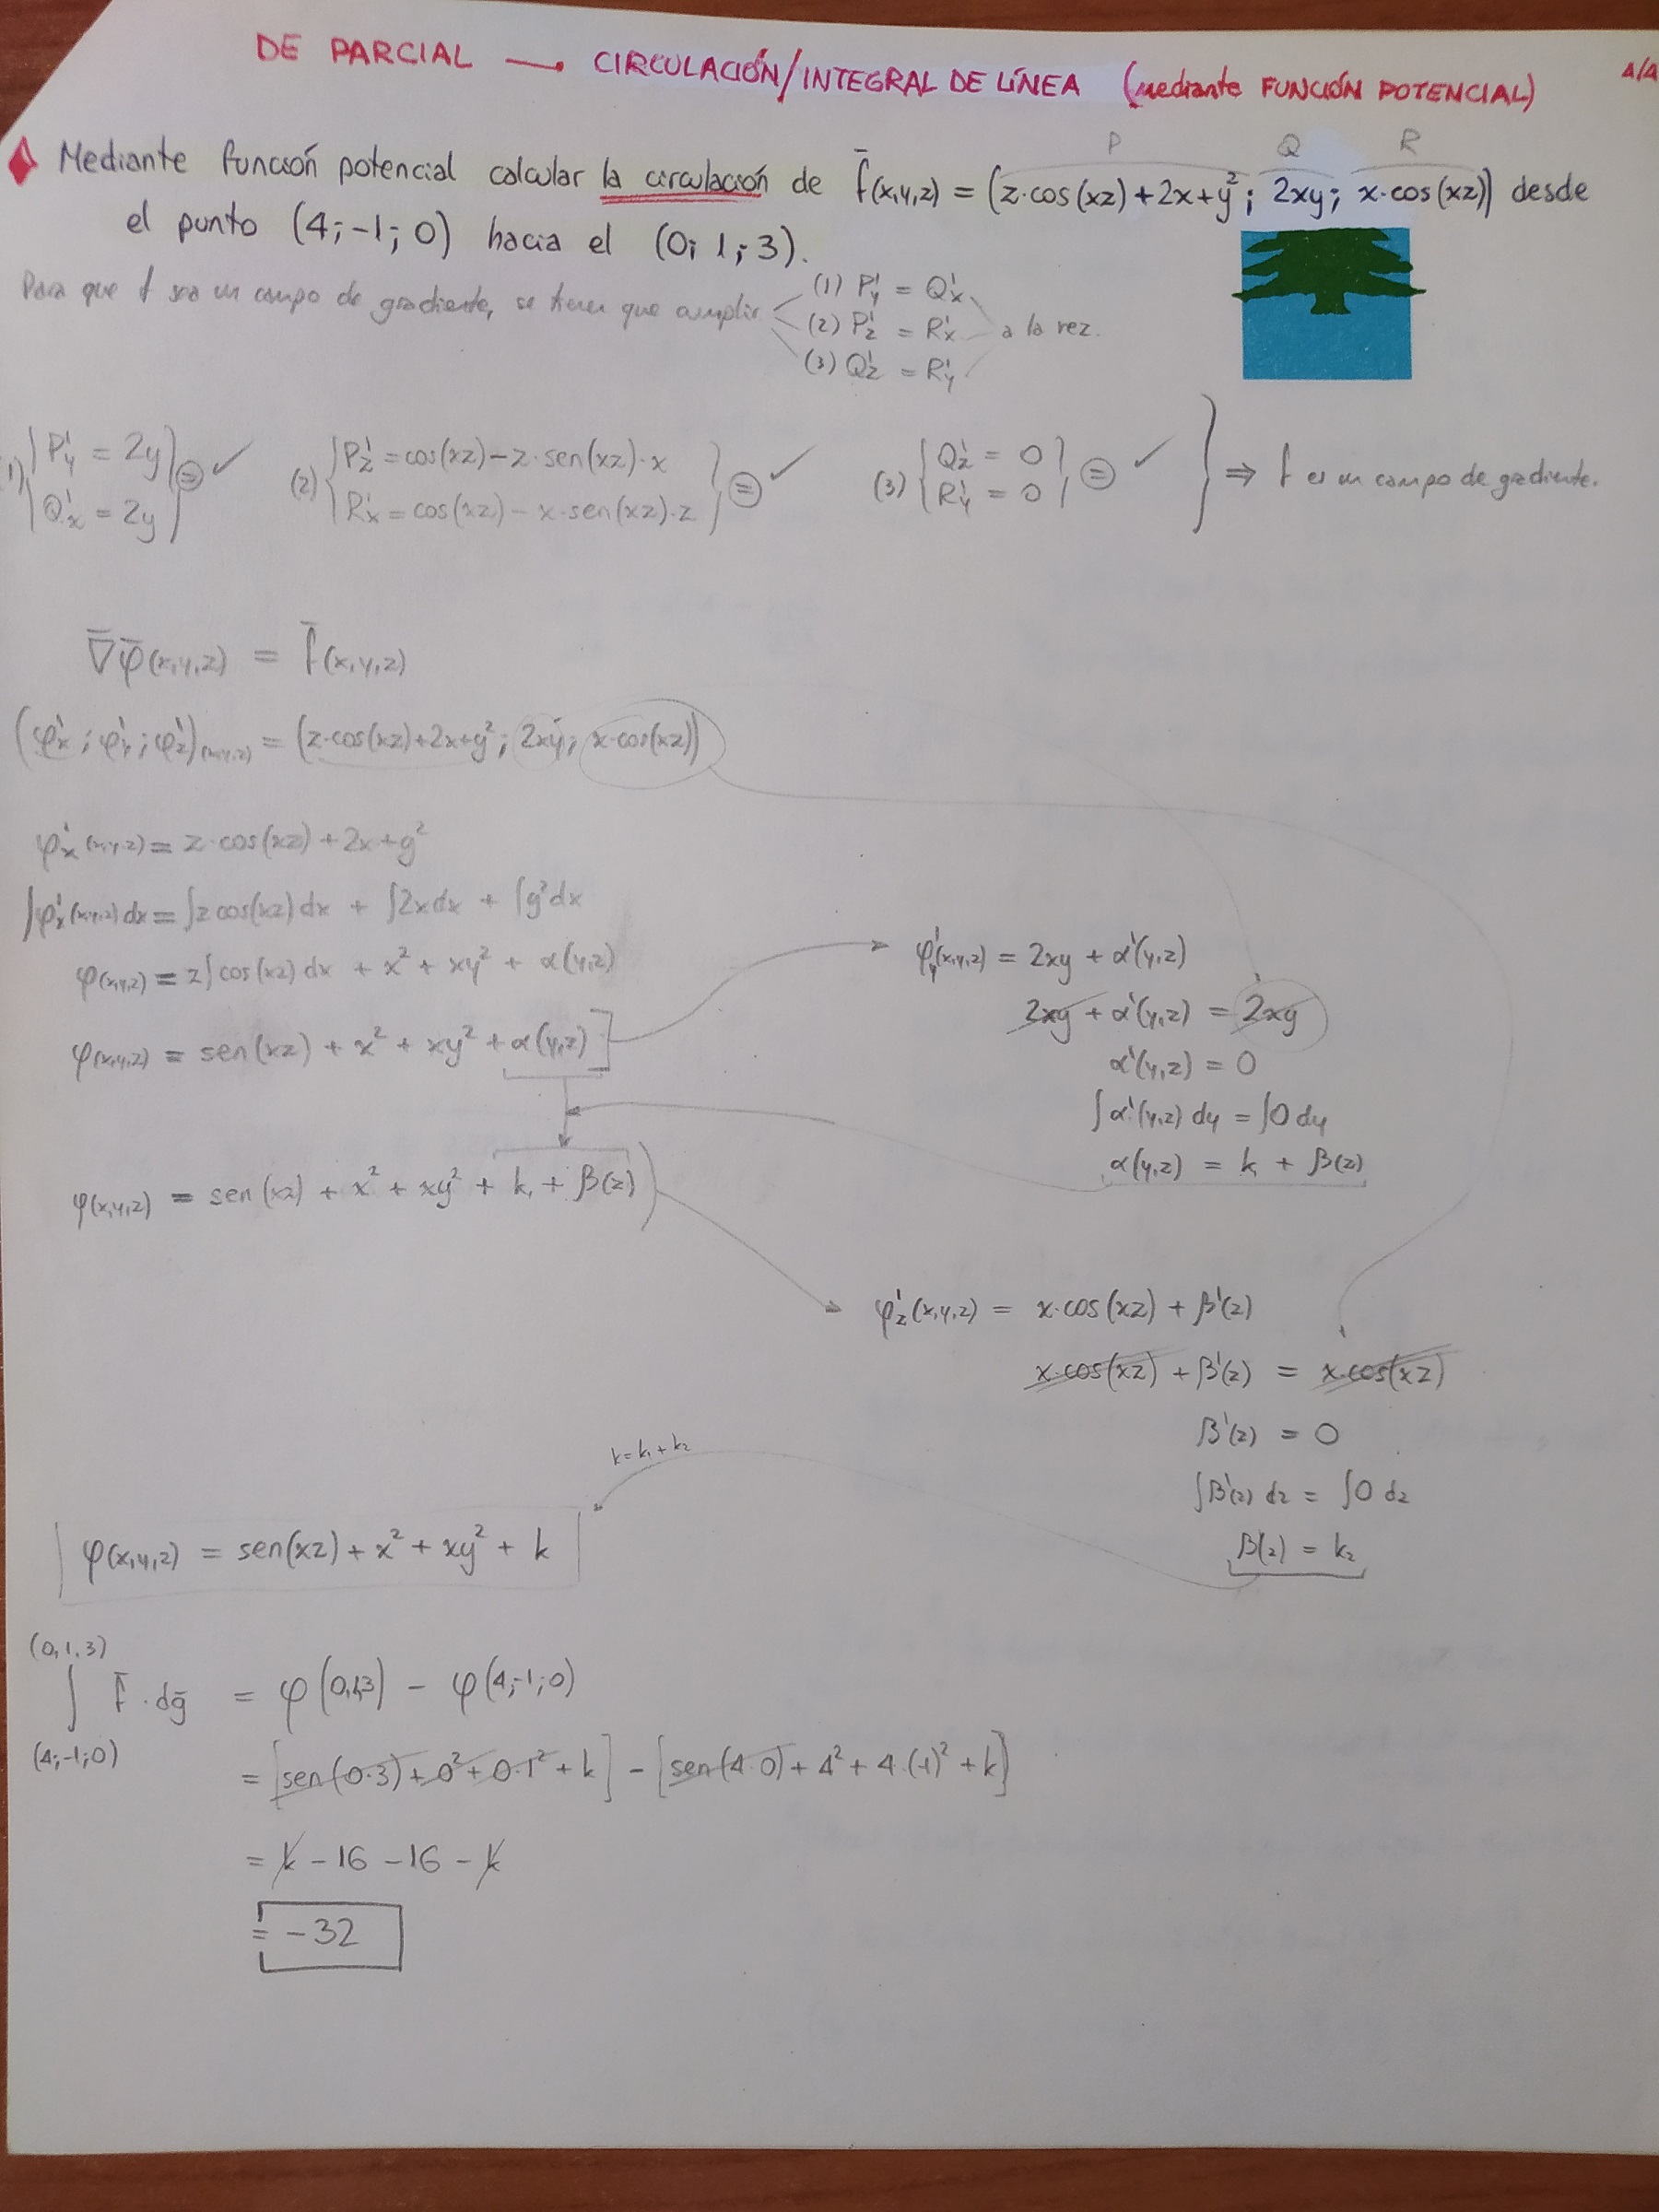 DE PARCIAL → CIRCULACIÓN/INTEGRAL DE LÍNEA (mediante FUNCIÓN POTENCIAL) 4/4
P Q R
Mediante función potencial calcular la circulación de f̄(x,y,z) = (z·cos(xz)+2x+y²; 2xy; x·cos(xz)) desde
el punto (4;-1;0) hacia el (0;1;3).
Para que f sea un campo de gradiente, se tienen que cumplir
(1) P'y = Q'x
(2) P'z = R'x a la vez.
(3) Q'z = R'y
1) { P'y = 2y
Q'x = 2y } ⊜ ✓
(2) { P'z = cos(xz) - z·sen(xz)·x
R'x = cos(xz) - x·sen(xz)·z } ⊜ ✓
(3) { Q'z = 0
R'y = 0 } ⊜ ✓ } ⇒ f es un campo de gradiente.
∇̄φ̄(x,y,z) = f̄(x,y,z)
(φ'x; φ'y; φ'z)(x,y,z) = (z·cos(xz)+2x+y²; 2xy; x·cos(xz))
φ'x(x,y,z) = z·cos(xz) + 2x + y²
∫φ'x(x,y,z) dx = ∫z cos(xz) dx + ∫2x dx + ∫y² dx
φ(x,y,z) = z∫cos(xz) dx + x² + xy² + α(y,z)
φ(x,y,z) = sen(xz) + x² + xy² + α(y,z)
φ'y(x,y,z) = 2xy + α'(y,z)
2xy + α'(y,z) = 2xy
α'(y,z) = 0
∫α'(y,z) dy = ∫0 dy
α(y,z) = k₁ + β(z)
φ(x,y,z) = sen(xz) + x² + xy² + k₁ + β(z)
φ'z(x,y,z) = x·cos(xz) + β'(z)
x·cos(xz) + β'(z) = x·cos(xz)
β'(z) = 0
∫β'(z) dz = ∫0 dz
β(z) = k₂
k = k₁ + k₂
φ(x,y,z) = sen(xz) + x² + xy² + k
(0,1,3)
∫ f̄·dḡ = φ(0,1,3) - φ(4;-1;0)
(4;-1;0)
= [sen(0·3) + 0² + 0·1² + k] - [sen(4·0) + 4² + 4·(-1)² + k]
= k - 16 - 16 - k
= -32